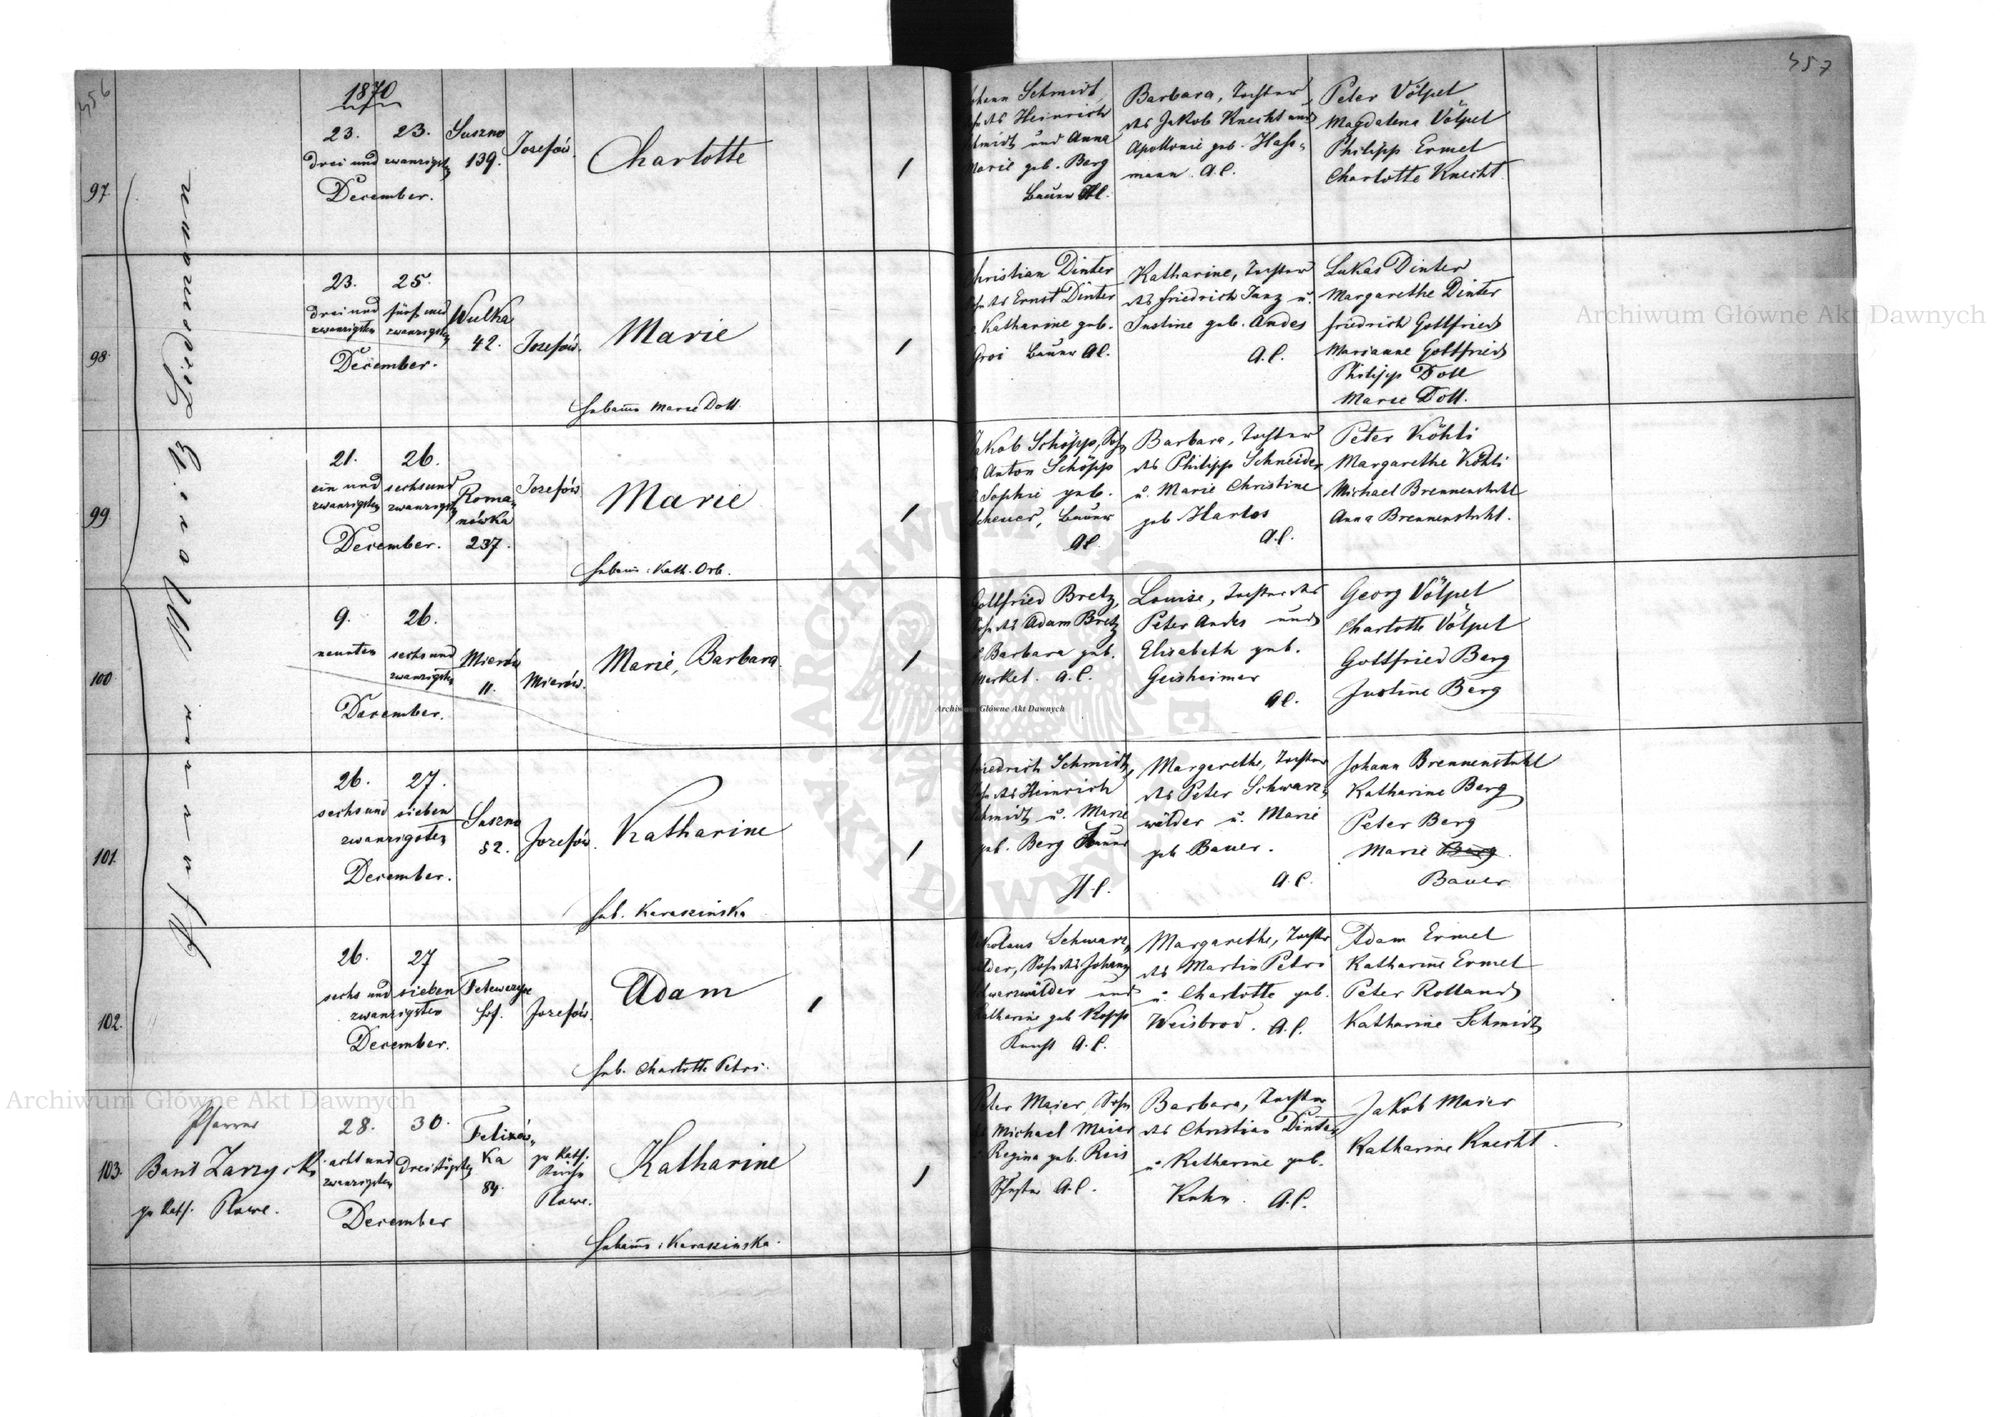 456
457
1870
97.
23. 23.
drei und zwanzigsten
December.
Suszno
139.
Josefów.
Charlotte
Johann Schmidt,
Sohn des Heinrich
Schmidt und Anna
Marie geb. Berg
Bauer A.C.
Barbara, Tochter
des Jakob Knecht und
Apollonie geb. Hass-
mann. A.C.
Peter Völpel
Magdalena Völpel
Philipp Ermel
Charlotte Knecht.
Pfarrer Moriz Siedmann
98.
23. 25.
drei und fünf und
zwanzigsten zwanzigsten
December.
Wulka
42.
Josefów.
Marie
Hebamme Marie Doll.
Christian Dinter
Sohn des Ernst Dinter
u. Katharine geb.
Groi Bauer A.C.
Katharine, Tochter
des Friedrich Janz u.
Justine geb. Andes
A.C.
Lukas Dinter
Margarethe Dinter
Friedrich Gottfried
Marianne Gottfried
Philipp Doll
Marie Doll.
99.
21. 26.
ein und sechs und
zwanzigsten zwanzigsten
December.
Roma-
nówka
237.
Josefów
Marie
Hebamme: Kath. Orb.
Jakob Schöpp, Sohn
d. Anton Schöpp
u. Sophie geb.
Scheuer, Bauer
A.C.
Barbara, Tochter
des Philipp Schneider
u. Marie Christine
geb. Harlos
A.C.
Peter Köhli
Margarethe Köhli
Michael Brennenstuhl
Anna Brennenstuhl.
100.
9. 26.
neunten sechs und
zwanzigsten
December.
Mierów
11.
Mierów.
Marie, Barbara
Gottfried Bretz,
Sohn des Adam Bretz
u. Barbara geb.
Merket. A.C.
Louise, Tochter des
Peter Andes und
Elisabeth geb.
Geisheimer
A.C.
Georg Völpel
Charlotte Völpel
Gottfried Berg
Justine Berg
101.
26. 27.
sechs und sieben
zwanzigsten
December.
Suszno
52.
Josefów.
Katharine
Heb. Karasinska
Friedrich Schmidt,
Sohn des Heinrich
Schmidt u. Marie
geb. Berg Bauer
A.C.
Margarethe, Tochter
des Peter Schwarz-
wälder u. Marie
geb. Bauer.
A.C.
Johann Brennenstuhl
Katharine Berg
Peter Berg
Marie Berg
Bauer.
102.
26. 27
sechs und sieben
zwanzigsten
December.
Hof.
Josefów.
Adam
Heb. Charlotte Petri.
Nikolaus Schwarz-
wälder, Sohn des Johann
Schwarzwälder und
Katharine geb. Kopp
A.C.
Margarethe, Tochter
des Martin Petri
u. Charlotte geb.
Weisbrod. A.C.
Adam Ermel
Katharine Ermel
Peter Rolland
Katharine Schmidt
103.
Pfarrer
zu Kath. Plowe.
28. 30.
acht und dreisigsten
zwanzigsten
December
Felizów-
ka
84.
zu Kath.
Kirche
Plowe.
Katharine
Hebamme: Karasinska.
Peter Maier, Sohn
d. Michael Maier
u. Regina geb. Reis
Schuster A.C.
Barbara, Tochter
des Christian Dinter
u. Katharine geb.
Kuhn. A.C.
Jakob Maier
Katharine Knecht.
Archiwum Główne Akt Dawnych
Archiwum Główne Akt Dawnych
Archiwum Główne Akt Dawnych